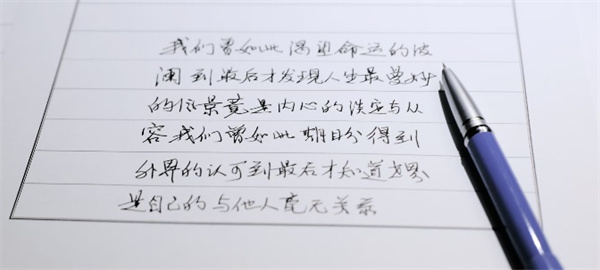 我们曾如此渴望命运的波
澜到最后才发现人生最曼妙
的风景竟是内心的淡定与从
容我们曾如此期盼得到
外界的认可到最后才知道世界
是自己的与他人毫无关系